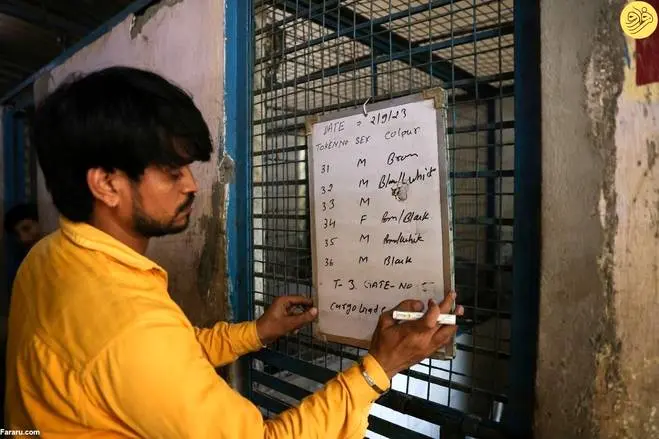 DATE : 2/9/23
TOKEN NO SEX Colour
31 M Brown
32 M Blak/whit
33 M
34 F Brn/Black
35 M Brn/whit
36 M Black
T-3. GATE-NO I
Cargo
فرارو
Fararu.com